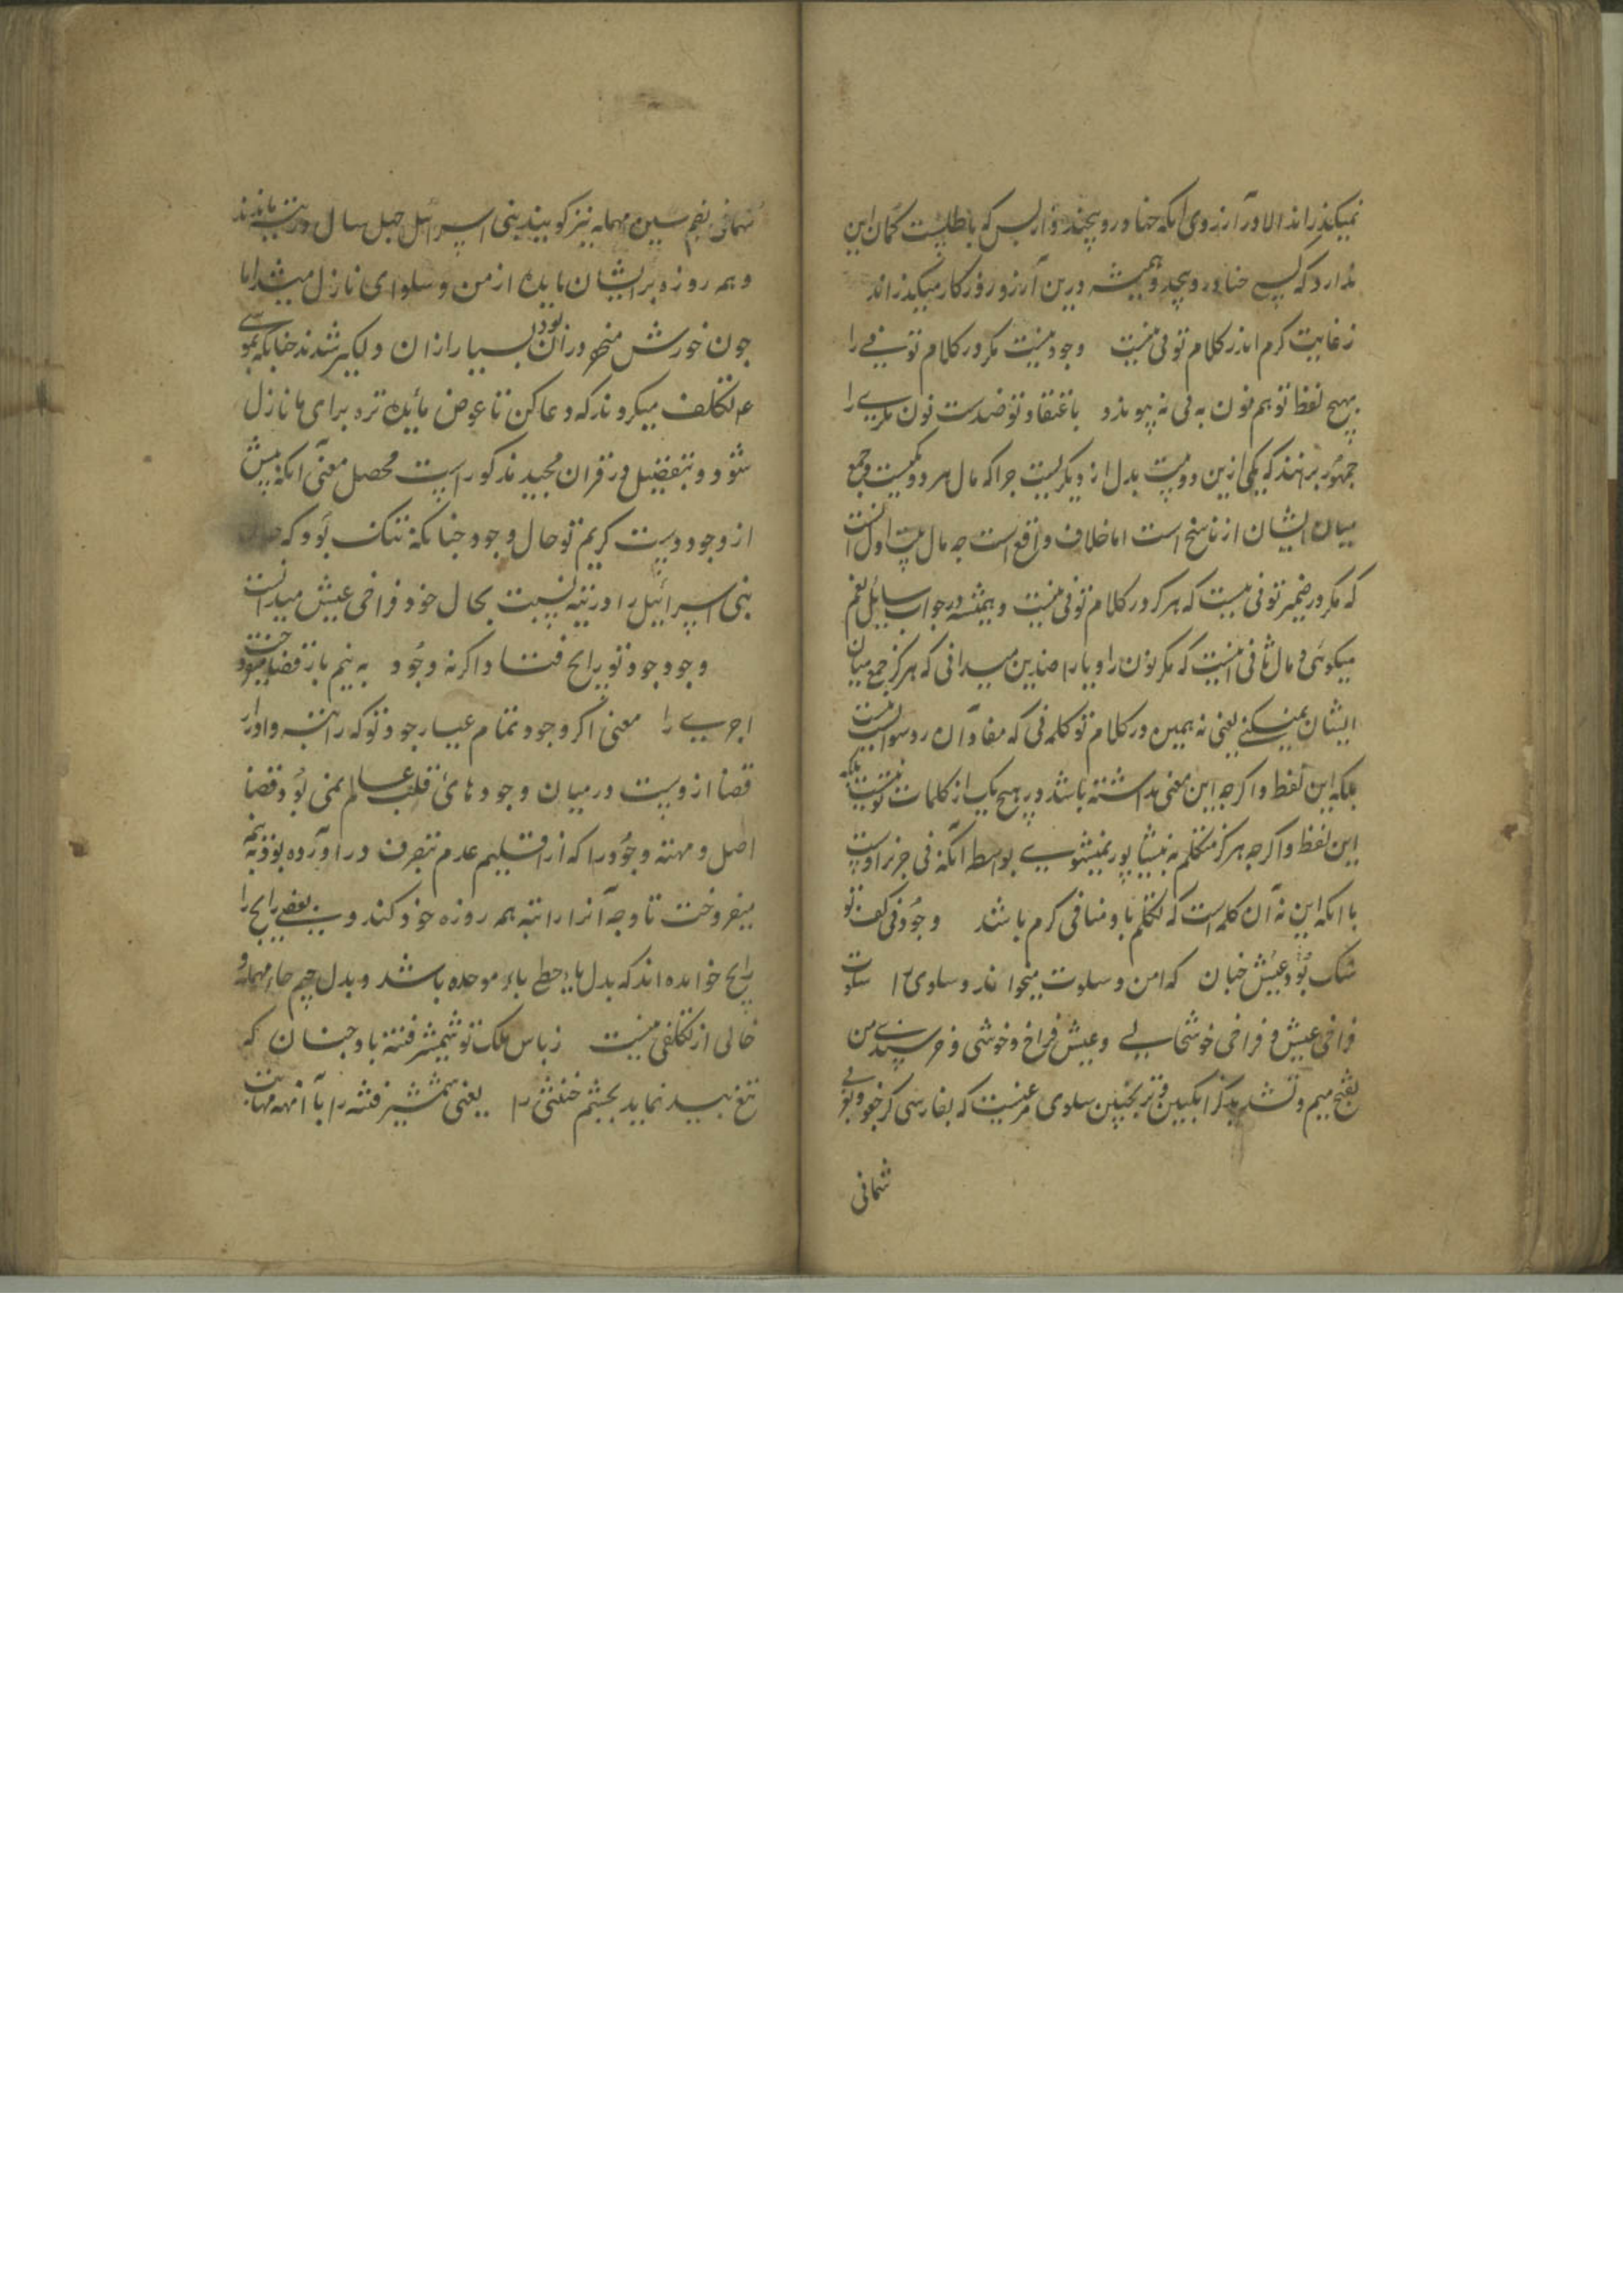 نمیکذراند الا در آرزوی انکه حنا درو پیچند و از بس که باطلست کمان این
ندارد که کسی حنا درو پیچد و همیشه درین آرزو روزکار میکذراند
ز غایت کرم اندر کلام تو نی نیست وجود نیست مکر در کلام تو نی را
بهیچ لفظ تو هم نون به فی نه پیوندد باعتقاد تو ضدست نون مکر یی را
جمهور برانند که یکی ازین دو بیت بدل از دیکریست جرا که مال هر دو یکیست و جمع
میان ایشان از ناسخ است اما خلاف واقع است جه مال بیت اول انست
که مکر در ضمیر تو نی نیست که هرکز در کلام تو نی نیست و همیشه در جواب سایل نعم
میکوئی و مال ثانی انیست که مکر نون را و یا را ضدین میدانی که هرکز جمع میان
ایشان نمیکنی یعنی نه همین در کلام تو کلمه نی که مفاد آن رد سوالست نیست
بلکه این لفظ و اکرجه این معنی نداشته باشد در هیچ یک از کلمات تو نیست بلکه
این لفظ و اکرجه هرکز متکلم به نیشاپور نمیشوی بواسطه آنکه نی جزء اوست
با انکه این نه آن کلمه است که تکلم باو منافی کرم باشد وجود نی کف تو
تنک بود و عیش جنان که امن و سلوت میخواند و سلوی را سلوت
فراخی عیش و فراخی خوشحالی و عیش فراخ و خوشی و خرسندی من
بفتح میم و تشدید کز انکبین و ترنجبین سلوی مرغیست که بفارسی کرجفو و بعربی
شمانی
شمانی بضم سین مهمله نیز کویند بنی اسرائیل جهل سال در تیه ماندند
و همه روزه بر ایشان مایده از من و سلوای نازل میشد اما
جون خورش منحصر در ان بود بسیار ازان دلکیر شدند جنانکه بموسی
ع تکلف میکردند که دعا کن تا عوض مایده تره برای ما نازل
شود و بتفضیل در قران مجید مذکور است محصل معنی آنکه پیش
از وجود دست کریم تو حال وجود جنانکه تنک بود که حال
بنی اسرائیل را در تیه نسبت بحال خود فراخی عیش میدانست
وجود جود تو رایج فتاد اکرنه وجود به نیم باز قضا میفروخت
اجری را معنی اکر وجود تمام عیار جود تو که راتبه و ادرار
قضا ازوست درمیان وجودهای قلب عالم نمی بود قضا
اصل و مهنه وجود را که از اقلیم عدم بتصرف در آورده بود به نیمه
میفروخت تا وجه آنرا راتبه همه روزه خود کند و بعضی رایج را
رابح خوانده اند که بدل یاء حطی باء موحده باشد و بدل جیم حاء مهمله و
خالی از تکلفی نیست ز باس ملک تو شمشیر فتنه باد جنان که
تیغ بید نماید بجشم خنثی را یعنی شمشیر فتنه را با آنهمه مهابت